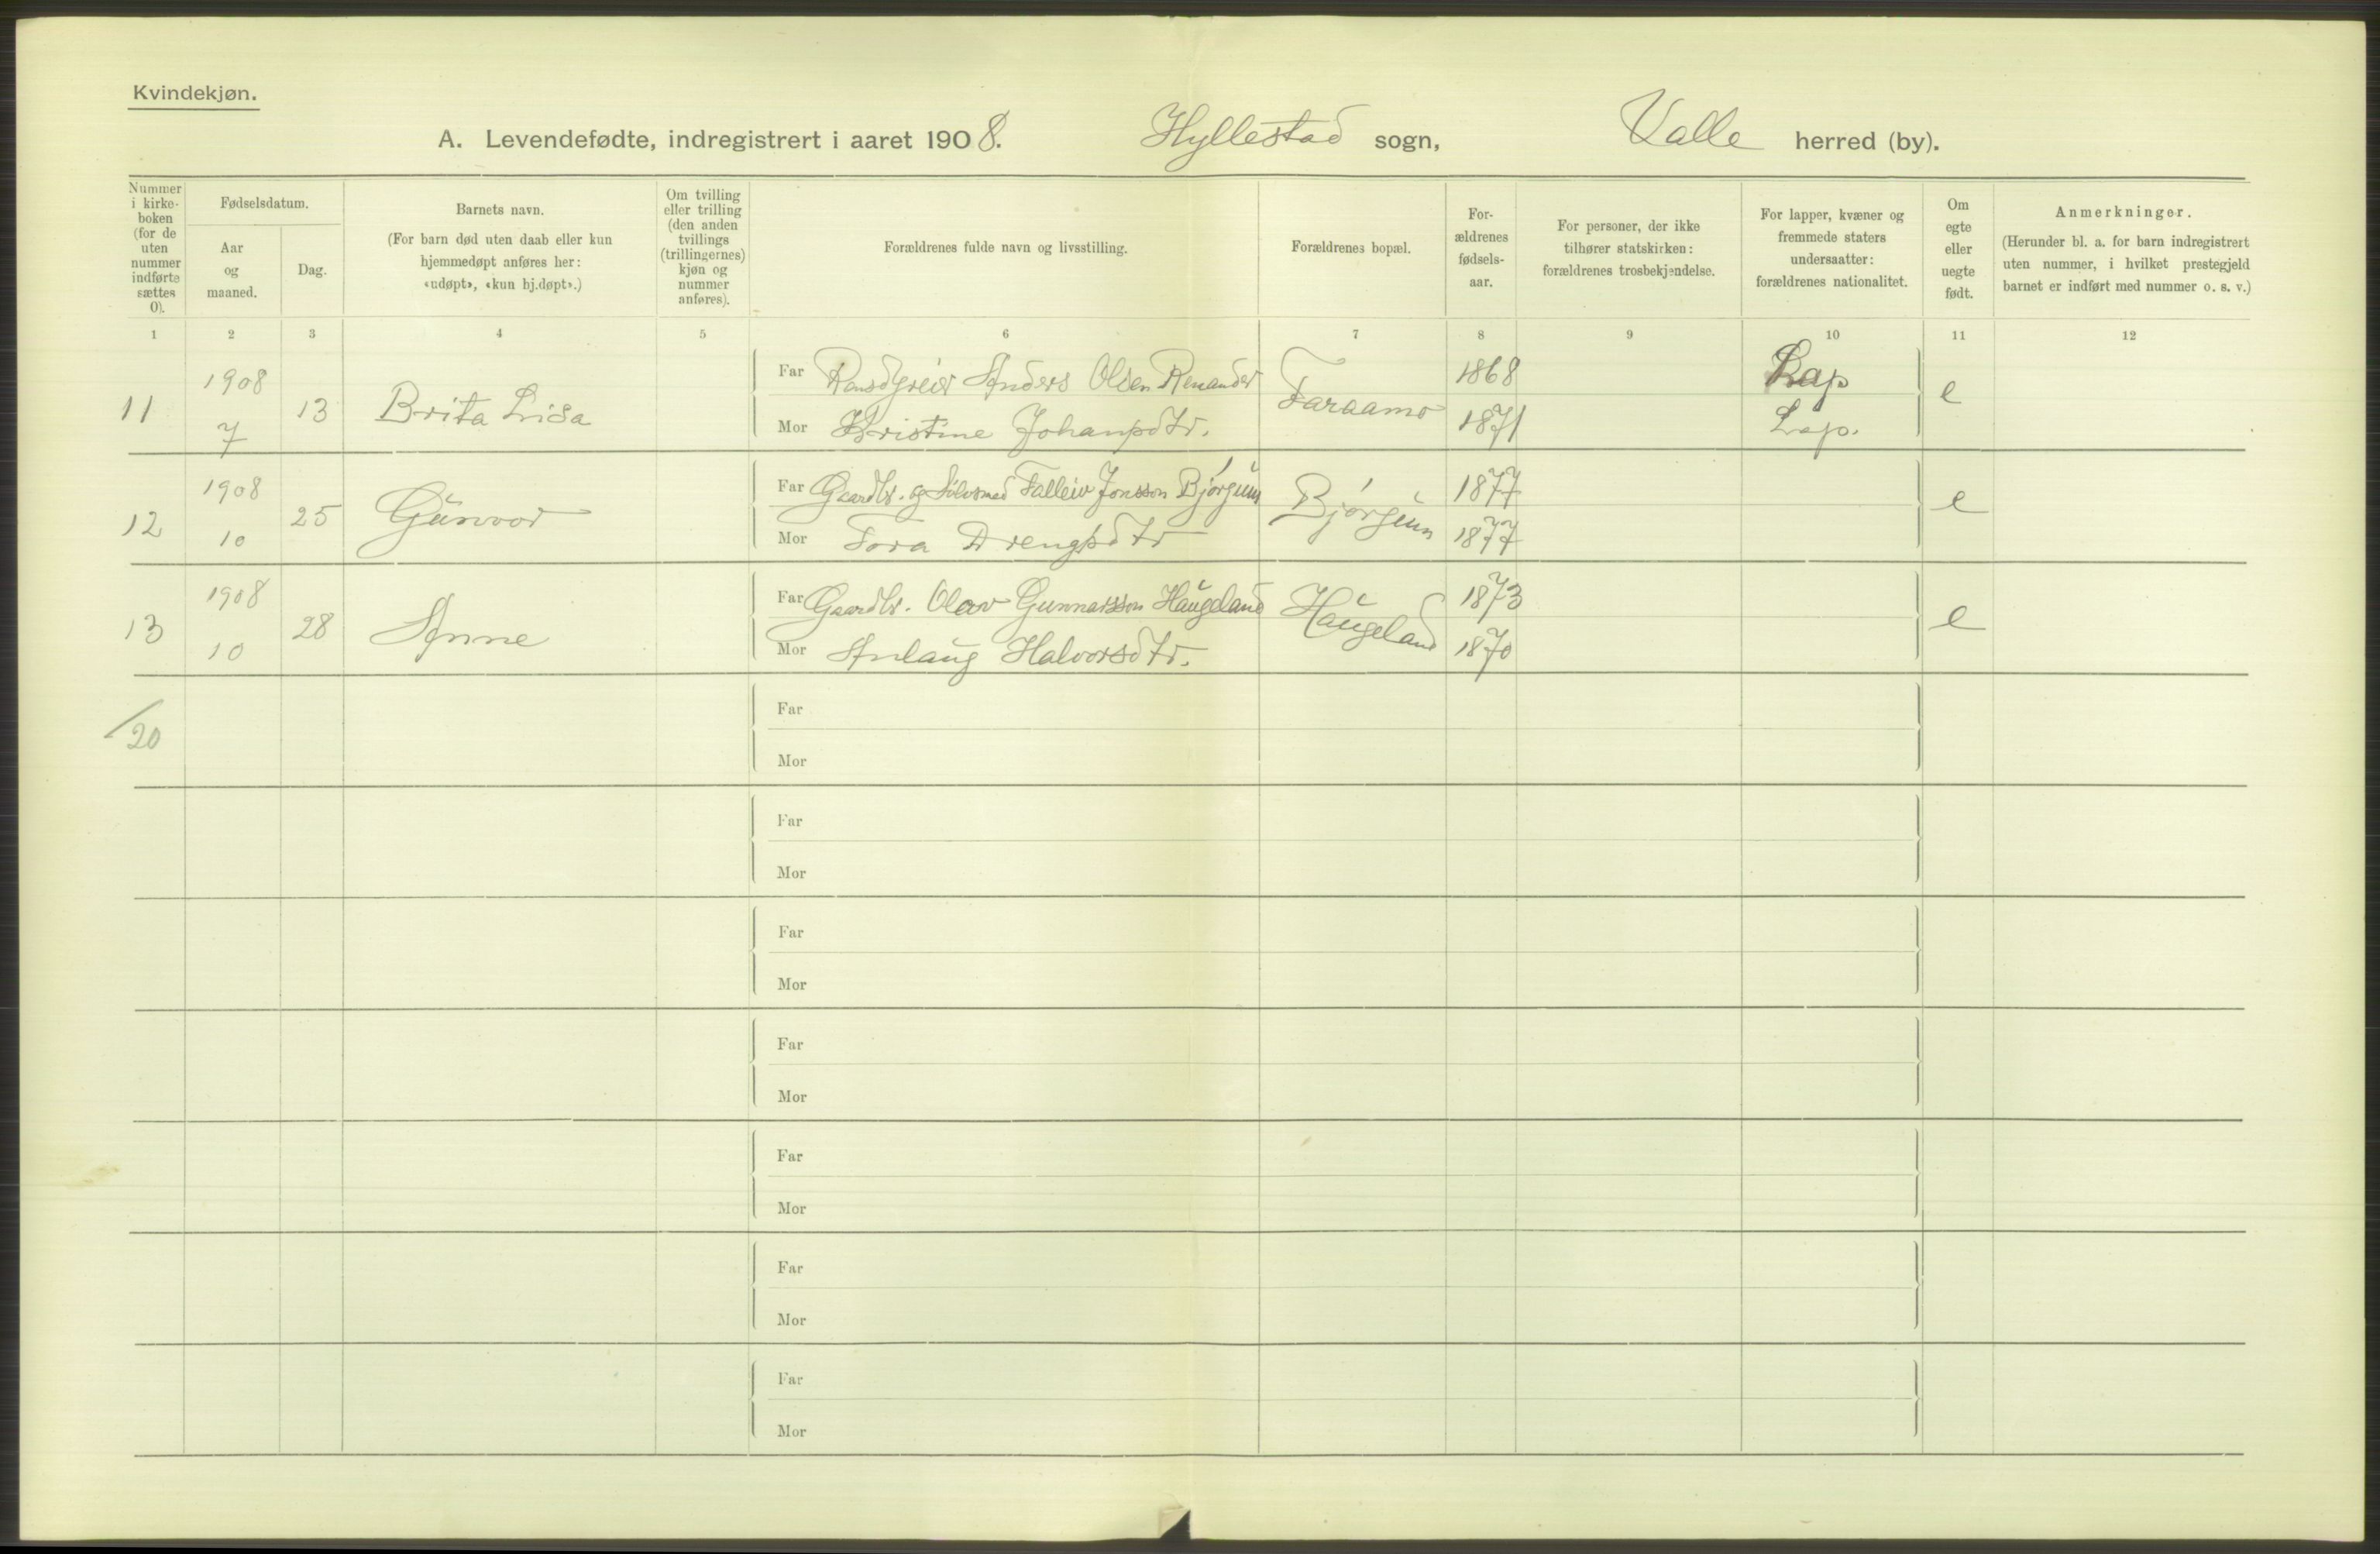 Kvindekjøn.
A. Levendefødte, indregistrert i aaret 1908. Hyllestad sogn, Valle herred (by).
Nummer i kirkeboken (for de uten nummer indførte sættes 0).
Fødselsdatum.
Aar og maaned.
Dag.
Barnets navn.
(For barn død uten daab eller kun hjemmedøpt anføres her: «udøpt», «kun hj.døpt».)
Om tvilling eller trilling (den anden tvillings (trillingernes) kjøn og nummer anføres).
Forældrenes fulde navn og livsstilling.
Forældrenes bopæl.
For-ældrenes fødsels-aar.
For personer, der ikke tilhører statskirken: forældrenes trosbekjendelse.
For lapper, kvæner og fremmede staters undersaatter: forældrenes nationalitet.
Om egte eller uegte født.
Anmerkninger.
(Herunder bl. a. for barn indregistrert uten nummer, i hvilket prestegjeld barnet er indført med nummer o. s. v.)
1 2 3 4 5 6 7 8 9 10 11 12
11 1908 7 13 Brita Lisa
Far Anders Olsen Renander Faraamo 1868 Lap e
Mor Kristine Johansdtr. 1871 Lap.
12 1908 10 25 Gunvor
Far Gaardbr. og Sølvsmed Talleiv Jonsson Bjørgum Bjørgum 1877 e
Mor Tora Drengsdtr 1877
13 1908 10 28 Anne
Far Gaardbr. Olav Gunnarsson Haugeland Haugeland 1873 e
Mor Anlaug Halvorsdtr. 1870
/20
Far
Mor
Far
Mor
Far
Mor
Far
Mor
Far
Mor
Far
Mor
Far
Mor